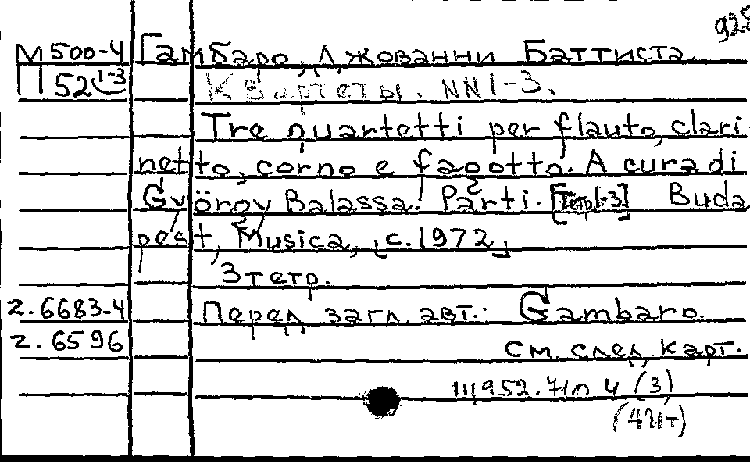 928
М500-4 Гамбаро, Джованни Баттиста
П 52 1-3 Квартеты. NN 1-3.
Tre quartetti per flauto, clari
netto, corno e fagotto. A cura di
György Balassa. Parti. [Тетр. 1-3] Buda
pest, Musica, [c. 1972]
3 тетр.
2.6683-4 Перед загл. авт.: Gambaro.
2.6596 См. след. карт.
952.
(3)